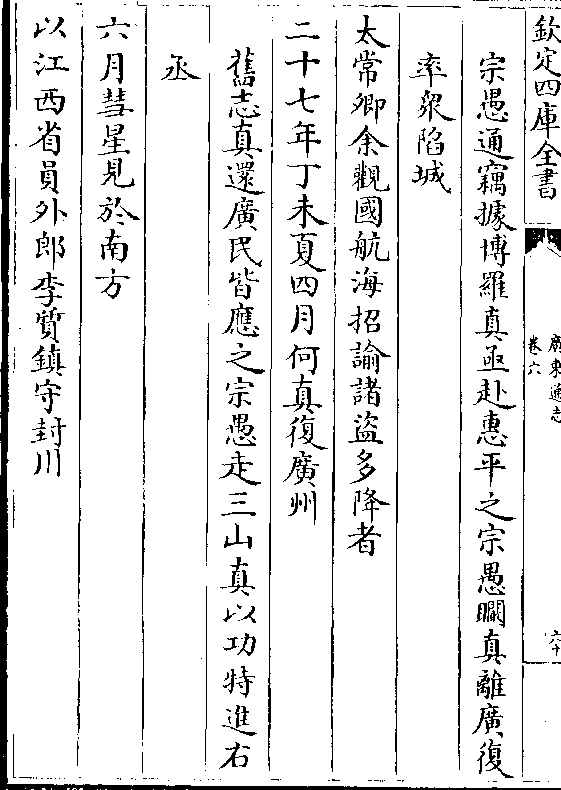 欽定四庫全書
廣東通志
卷六
六十
宗愚通竊據博羅真亟赴惠平之宗愚瞯真離廣復
率衆陷城
太常卿余觀國航海招諭諸盜多降者
二十七年丁未夏四月何真復廣州
舊志真還廣民皆應之宗愚走三山真以功特進右
丞
六月彗星見於南方
以江西省員外郎李質鎮守封川